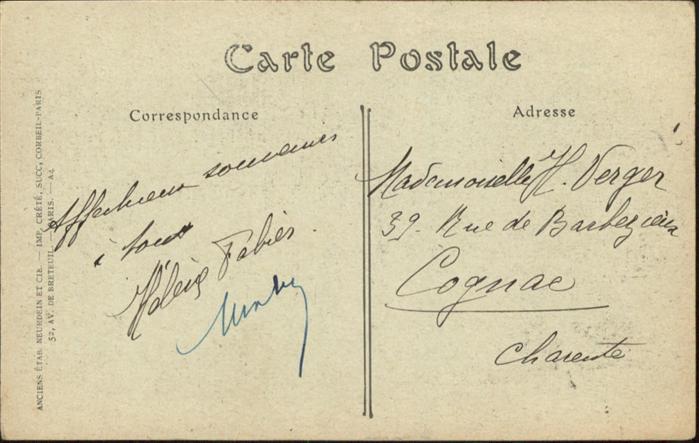 Carte Postale
Correspondance
Adresse
Affectueux souvenirs
à tous
Fabier
Mademoiselle H. Verger
39. Rue de Barbezieux
Cognac
Charente
ANCIENS ÉTAB. NEURDEIN ET CIE. — IMP. CRÉTÉ, SUCC, CORBEIL-PARIS
52, AV. DE BRETEUIL. — PARIS. — A4